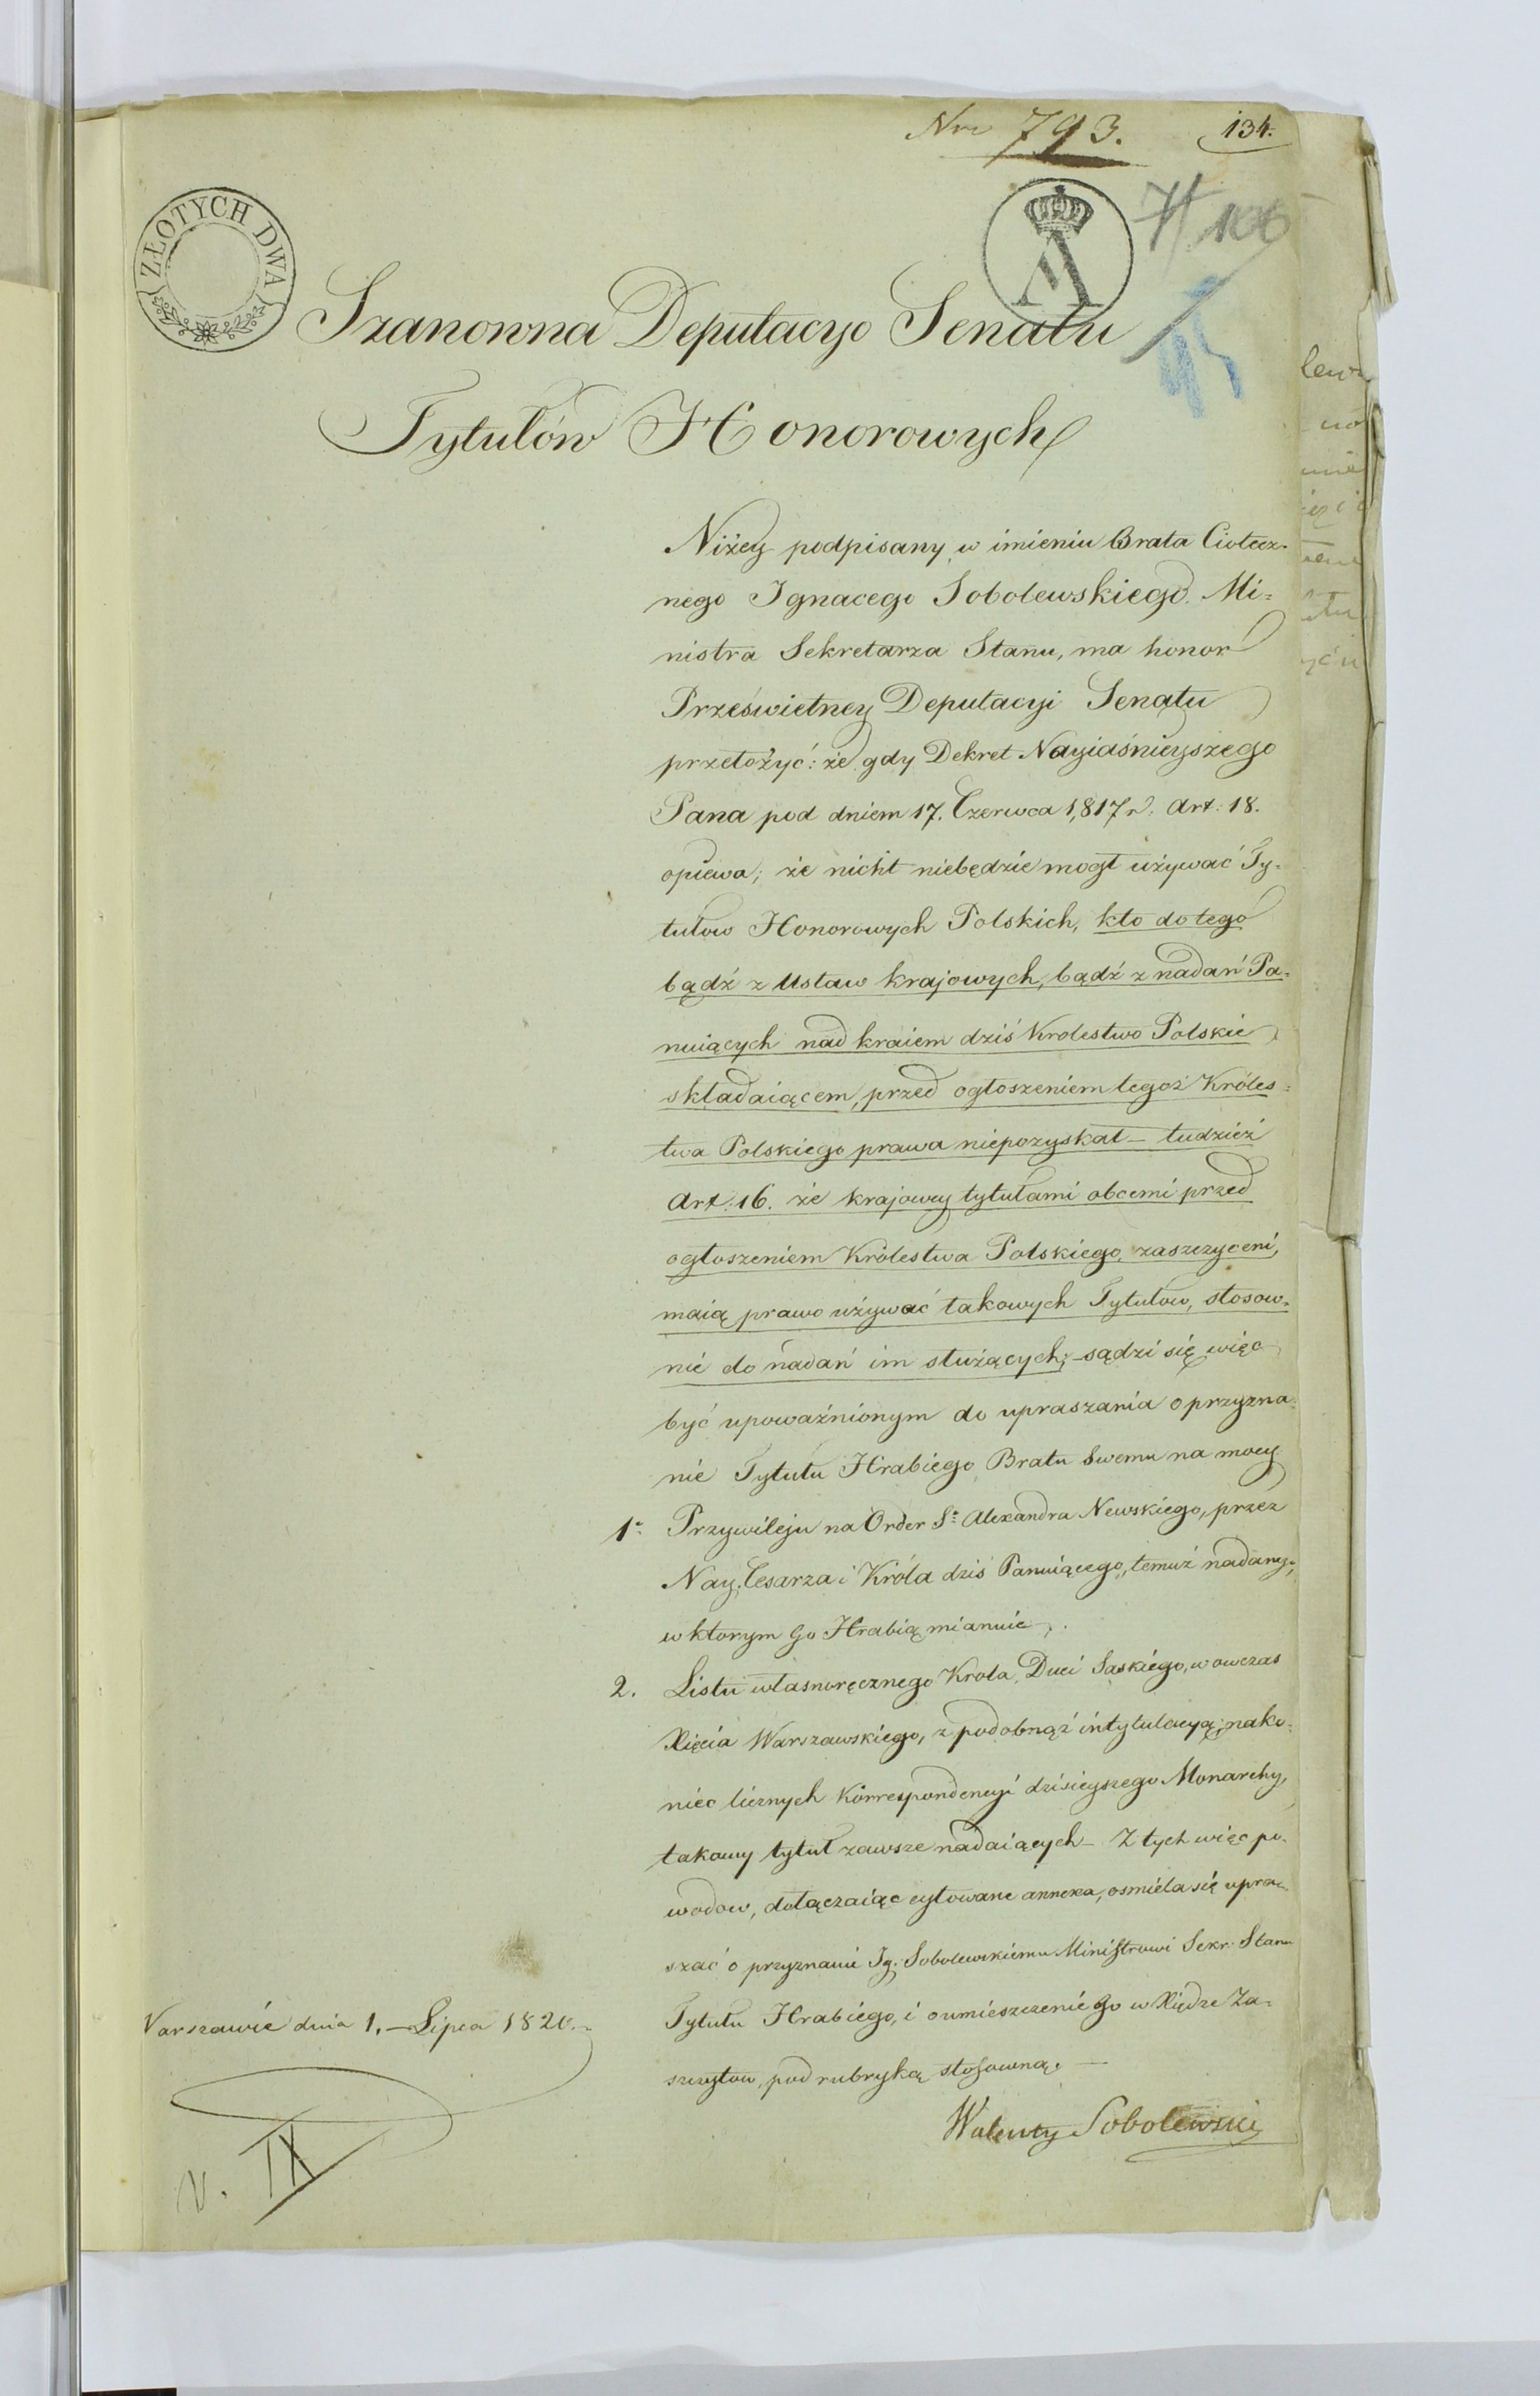 Nro 793.
134.
ZŁOTYCH DWA
A
7/106
Szanowna Deputacyo Senatu
Tytułów Honorowych
Niżey podpisany, w imieniu Brata Ciotecz-
nego Ignacego Sobolewskiego. Mi-
nistra Sekretarza Stanu, ma honor
Prześwietney Deputacyi Senatu
przełożyć: że gdy Dekret Nayiaśnieyszego
Pana pod dniem 17. Czerwca 1,817 r. Art: 18.
opiewa; że nicht niebędzie mogł używać Ty-
tułow Honorowych Polskich, kto do tego
bądź z Ustaw krajowych, bądź z nadań Pa-
nuiących nad kraiem dziś Krolestwo Polskie
składaiącem, przed ogłoszeniem tegoż Króles-
twa Polskiego prawa niepozyskał – tudzież
Art: 16. że krajowcy tytułami obcemi przed
ogłoszeniem Królestwa Polskiego, zaszczyceni,
maią prawo używać takowych Tytułow, stosow-
nie do nadań im służących; – sądzi się więc
być upoważnionym do upraszania o przyzna-
nie Tytułu Hrabiego Bratu Swemu na mocy
1º Przywileju na Order Sº Alexandra Newskiego, przez
Nay. Cesarza i Króla dziś Panuiącego, temuż nadanego,
w ktorym Go Hrabią mianuie.
2. Listu własnoręcznego Krola Duci Saskiego, w owczas
Xięcia Warszawskiego, z podobnąż intytulacyą; nako-
niec licznych Korrespondencyi dzisieyszego Monarchy,
takowy tytuł zawsze nadaiących – Z tych więc po-
wodow, dołączaiąc cytowane annexa, osmiela się upra-
szać o przyznanie Ig. Sobolewskiemu Ministrowi Sekr: Stanu
Tytułu Hrabiego, i o umieszczenie Go w Xiędze Za-
szczytow, pod rubryką stosowną. –
Walenty Sobolewski
Warszawie dnia 1. – Lipca 1820. –
N. IX